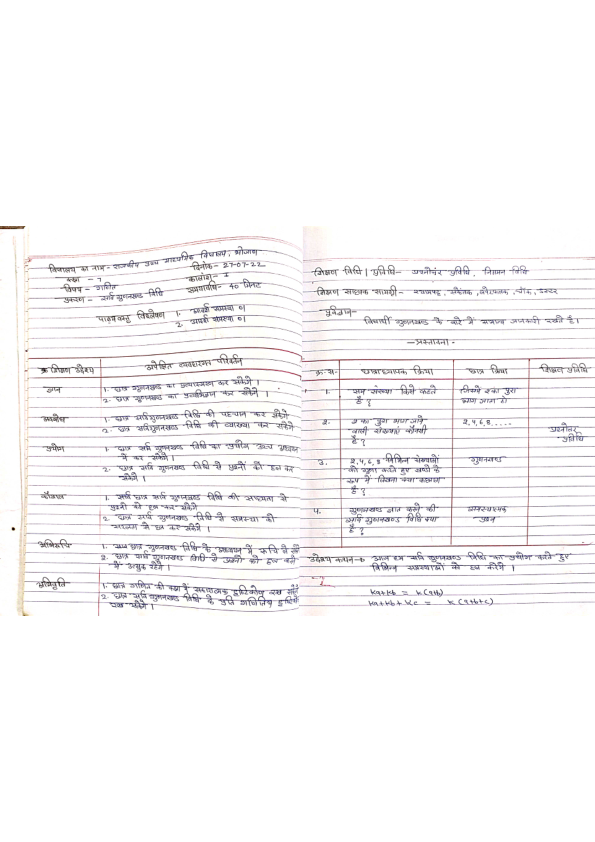 विद्यालय का नाम - राजकीय उच्च माध्यमिक विद्यालय,
कक्षा - 7
दिनांक - 27-07-22
विषय - गणित
कालांश - 1
प्रकरण - सर्व गुणनखण्ड विधि
समयावधि - 40 मिनट
पाठ्यवस्तु विश्लेषण 1. आदर्श समस्या 01
2. आदर्श समस्या 01
शिक्षण उद्देश्य
अपेक्षित व्यवहारगत परिवर्तन
ज्ञान
1. छात्र गुणनखण्ड का प्रत्यास्मरण कर सकेंगे ।
2. छात्र गुणनखण्ड का प्रत्यभिज्ञान कर सकेंगे ।
अवबोध
1. छात्र सर्वगुणनखण्ड विधि की पहचान कर सकेंगे
2. छात्र सर्वगुणनखण्ड विधि की व्याख्या कर सकेंगे
प्रयोग
1. छात्र सर्व गुणनखण्ड विधि का प्रयोग अन्य अध्ययन
में कर सकेंगे ।
2. छात्र सर्व गुणनखण्ड विधि से प्रश्नों को हल कर
सकेंगे ।
कौशल
1. सर्व छात्र सर्व गुणनखण्ड विधि की सहायता से
प्रश्नों को हल कर सकेंगे
2. छात्र सर्व गुणनखण्ड विधि से समस्या को
हल कर सकेंगे ।
अभिरूचि
1. सभी छात्र गुणनखण्ड विधि के अध्ययन में रूचि ले सकेंगे
2. छात्र सर्व गुणनखण्ड विधि से प्रश्नों को हल करने
में उत्सुक रहेंगे ।
अभिवृति
1. छात्र गणित की कक्षा में सकारात्मक दृष्टिकोण रख सकेंगे
2. छात्र सर्व गुणनखण्ड विधि के प्रति गणितिय दृष्टिकोण
रख सकेंगे ।
शिक्षण विधि / प्रविधि - प्रश्नोत्तर प्रविधि, निगमन विधि
शिक्षण सहायक सामग्री - श्यामपट्ट, संकेतक, चार्ट, चॉक, डस्टर
पूर्वज्ञान -
विद्यार्थी गुणनखण्ड के बारे में सामान्य जानकारी रखते है ।
- प्रस्तावना -
क्र. सं.
छात्राध्यापक क्रिया
छात्र क्रिया
शिक्षण प्रविधि
1. सम संख्या किसे कहते
है ?
जिसमे 2 का पूरा
भाग जाता हो
2. 2 का पूरा भाग जाने
वाली संख्याएं कौनसी
है ?
2,4,6,8.....
प्रश्नोत्तर
प्रविधि
3. 2,4,6,8 विभिन्न संख्याओं
को गुणा करते हुए खण्डो के
रूप में लिखना क्या कहलाता
है ?
गुणनखण्ड
4. गुणनखण्ड ज्ञात करने की
सर्व गुणनखण्ड विधि क्या
है ?
समस्यात्मक
प्रश्न
उद्देश्य कथन - आज हम सर्व गुणनखण्ड विधि का प्रयोग करते हुए
विभिन्न समस्याओं को हल करेंगे ।
ka+kb = k(a+b)
ka+kb+kc = k(a+b+c)